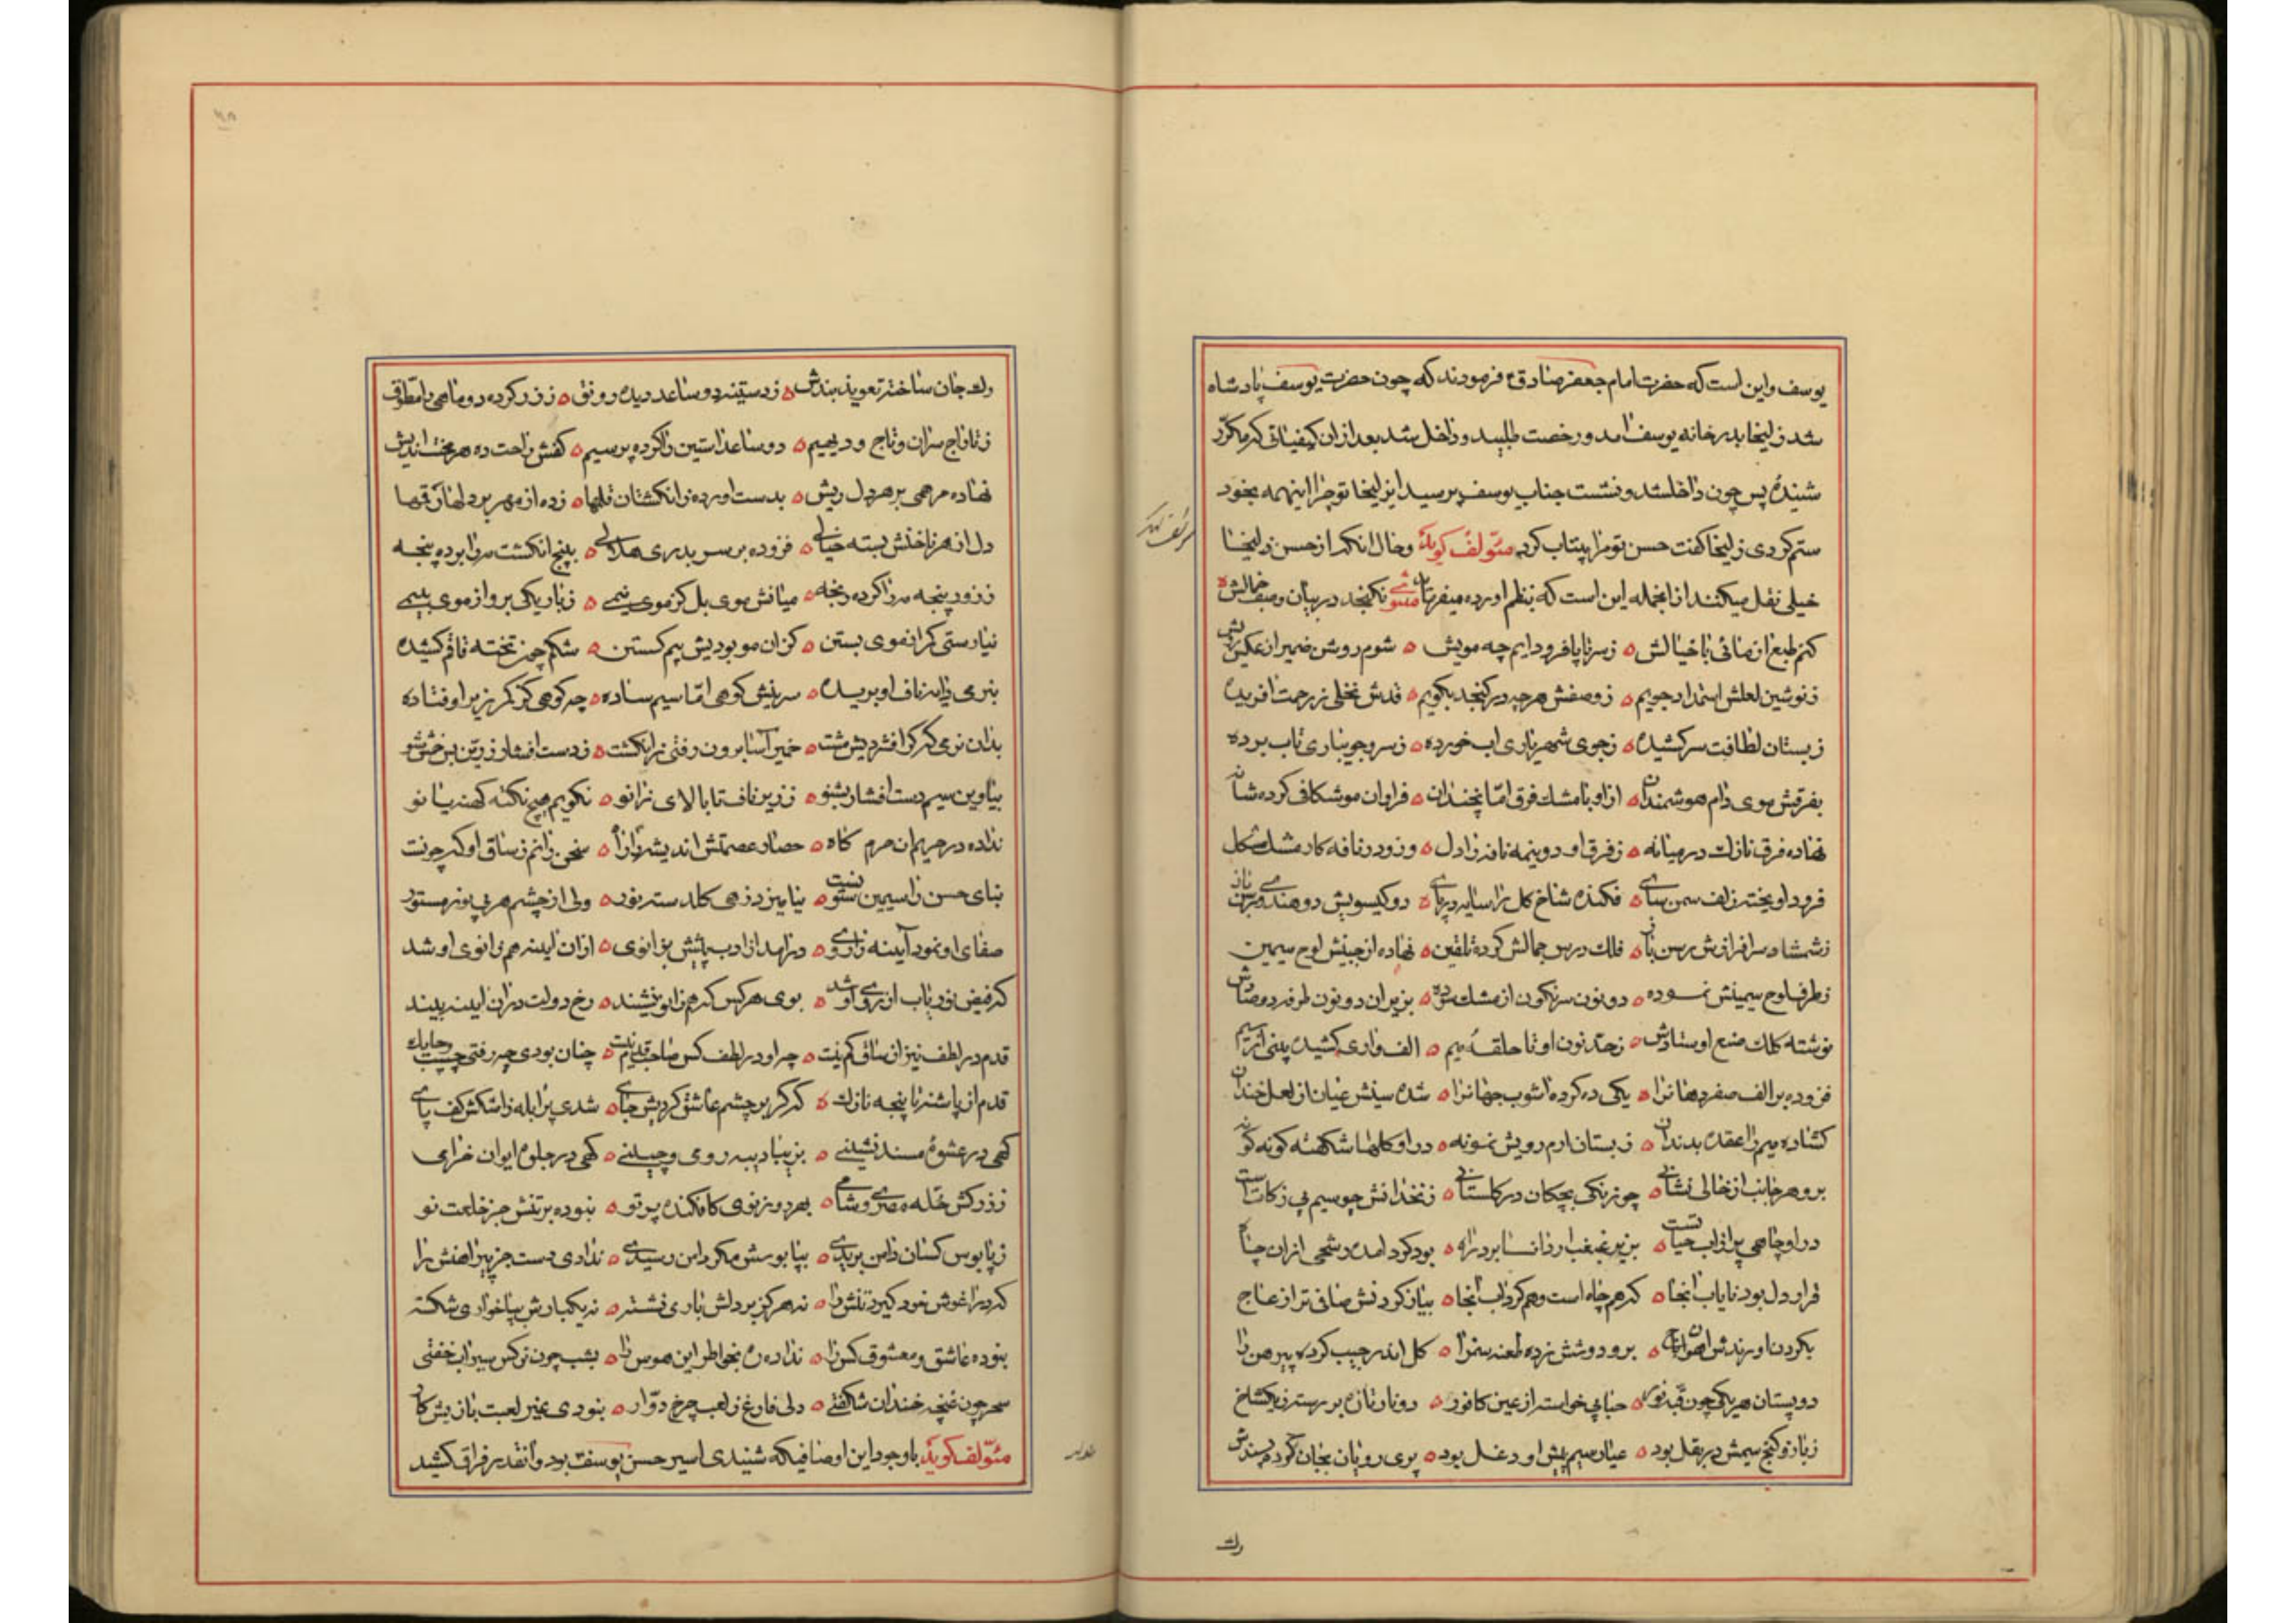 یوسف و این است که حضرت امام جعفر صادق ع فرمودند که چون حضرت یوسف پادشاه
شد زلیخا بدر خانه یوسف امد و رخصت طلبید و داخل شد بعد از ان کیفیاتی که مکرّر
شنیدهٔ پس چون داخلشد و نشست جناب یوسف پرسید ای زلیخا تو چرا اینهمه بخود
ستم کردی زلیخا کفت حسن تو مرا بیتاب کرد مئوّلف کوید و حال انکه از حسن زلیخا
خیلی نقل میکنند از انجمله این است که بنظم اورده میفرماید مثنوی نکنجد در بیان وصف جمالش ه
کنم طبع ازمائی با خیالش ه ز سر تا پا فرود ایم چه مویش ه شوم روشن ضمیر از عکس رویش
ز نوشین لعلش استمداد جویم ه ز وصفش هر چه در کنجد بکویم ه قدش نخلی ز رحمت افریده
ز بستان لطافت سر کشیده ه ز جوی شهریاری اب خورده ه ز سرو جویباری تاب برده
بفرقش موی دام هوشمندان ه از او تا مشک فرق اما نچندان ه فراوان موشکافی کرده شانه
نهاده فرق نازک در میانه ه ز فرق او دو نیمه نافه را دل ه وز و در نافه کار مشک مشکل
فرود اویخته زلف سمن سای ه فکنده شاخ کل را سایه در پای ه دو کیسویش دو هندوی رسن باز
ز شمشاد سرافرازش رسن باز ه فلک درس جمالش کرده تلقین ه نهاده از جبینش لوح سیمین
ز طرف لوح سیمینش نموده ه دو نون سرنکون از مشک سوده ه بزیر ان دو نون طرفه دو صادش
نوشته کلک صنع اوستادش ه ز حدّ نون او تا حلقهٔ میم ه الف واری کشیده بینی از سیم
فزوده بر الف صفر دهانرا ه یکی ده کرده اشوب جهانرا ه شده سینش عیان از لعل خندان
کشاده میم را عقده بدندان ه ز بستان ارم رویش نمونه ه در او کلها شکفته کونه کونه
بر و هر جانب از خالی نشانی ه چو زنکی بچکان در کلستانی ه زنخدانش چو سیم بی زکات است
در او چاهی پر از اب حیات است ه بزیر غبغب ار دانا برد راه ه بود کرد امده رشحی از ان چاه
قرار دل بود نایاب انجا ه که هم چاه است و هم کرداب انجا ه بیاض کردنش صافی تر از عاج
بکردن اورندش اهوان باج ه بر و دوشش زده طعنه سمن را ه کل اندر جیب کرده پیرهن را
دو پستان هر یکی چون قبهٔ نور ه حبابی خواسته از عین کافور ه دو نار تازه بر رسته ز یک شاخ
ز بازو کنج سیمش در بغل بود ه عیار سیم پیش او دغل بود ه پری رویان بجان کرده پسندش
رک
رک جان ساخته تعویذ بندش ه ز دستینه دو ساعد دیده رونق ه ز زر کرده دو ماهی را مطوّق
ز تاراج سران و تاج و دیهیم ه دو ساعد استین را کرده پر سیم ه کفش راحت ده هر محنت اندیش
نهاده مرهمی بر هر دل ریش ه بدست اورده ز انکشتان قلمها ه زده از مهر بر دلها رقمها
دل از هر ناخنش بسته خیالی ه فزوده بر سر بدری هلالی ه بپنج انکشت مه را برده پنجه
ز زور پنجه مه را کرده رنجه ه میانش موی بل کز موی نیمی ه ز باریکی بر و از موی بیمی
نیارستی کمر از موی بستن ه کز ان مو بودیش بیم کسستن ه شکم چون تخته قاقم کشیده
بنرمی دایه ناف او بریده ه سرینش کوهی امّا سیم ساده ه چه کوهی کز کمر زیر اوفتاده
بدان نرمی که کر افشردیش مشت ه خمیر آسا برون رفتی ز انکشت ه ز دست افشار زرین بس خمش شو
بیا وین سیم دست افشار بشنو ه ز زیر ناف تا بالای زانو ه نکویم هیچ نکته کهنه یا نو
نداده در حریم ان حرم کاه ه حصار عصمتش اندیشه را راه ه سخن رانم ز ساق او که چونست
بنای حسن را سیمین ستونست ه بنامیزد زهی کلدسته نور ه ولی از چشم هر بی نور مستور
صفای او نمود آیینه را روی ه در امد از ادب پیشش بزانوی ه از ان ایینه هم زانوی او شد
که فیض نور یاب از روی او شد ه بوی هر کس که هم زانو نشیند ه رخ دولت در ان ایینه بیند
قدم در لطف نیز از ساق کم نیست ه چو او در لطف کس صاحب قدم نیست ه چنان بودی چه رفتی چست و چابک
قدم از پاشنه تا پنجه نازک ه که کر بر چشم عاشق کردیش جای ه شدی پر ابله ز اشکش کف پای
کهی در عشوهٔ مسند نشینی ه بزیبا دیبه رومی و چینی ه کهی در جلوهٔ ایوان خرامی
ز زرکش حله مصری و شامی ه بهر روز نوی کافکنده پرتو ه نبوده بر تنش جز خلعت نو
ز پا بوس کسان دامن بریدی ه بپا بوسش مکر دامن رسیدی ه ندادی دست جز پیراهنش را
که در اغوش خود کیرد تنش را ه نه هرکز بر دلش باری نشسته ه نه یکبارش بپا خاری شکسته
نبوده عاشق و معشوق کس را ه نداده ره بخاطر این هوس را ه بشب چون نرکس سیراب خفتی
سحر چون غنچه خندان شکفتی ه دلی فارغ ز لعب چرخ دوّار ه نبودی غیر لعبت بازیش کار
مئوّلف کوید با وجود این اوصافیکه شنیدی اسیر حسن یوسف بود و انقدر فراق کشید